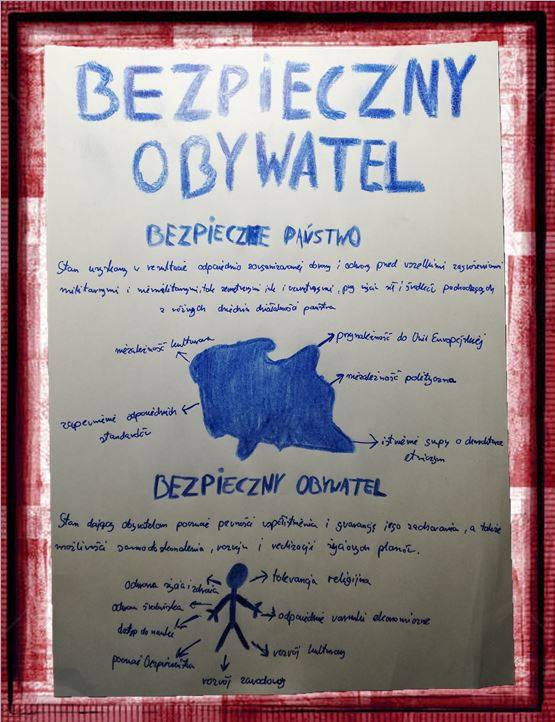 BEZPIECZNY
OBYWATEL
BEZPIECZNE PAŃSTWO
Stan uzyskany w rezultacie odpowiednio zorganizowanej obrony i ochrony przed wszelkimi zagrożeniami
militarnymi i niemilitarnymi, tak zewnętrznymi jak i wewnętrznymi, przy użyciu sił i środków pochodzących
z różnych dziedzin działalności państwa
niezależność kulturowa
przynależność do Unii Europejskiej
niezależność polityczna
zapewnienie odpowiednich
standardów
istnienie grupy o charakterze
etnicznym
BEZPIECZNY OBYWATEL
Stan dający obywatelom poczucie pewności współistnienia i gwarancję jego zachowania, a także
możliwości samodoskonalenia, rozwoju i realizacji życiowych planów.
ochrona życia i zdrowia
tolerancja religijna
ochrona środowiska
odpowiednie warunki ekonomiczne
dostęp do nauki
rozwój kulturowy
poczucie bezpieczeństwa
rozwój zawodowy